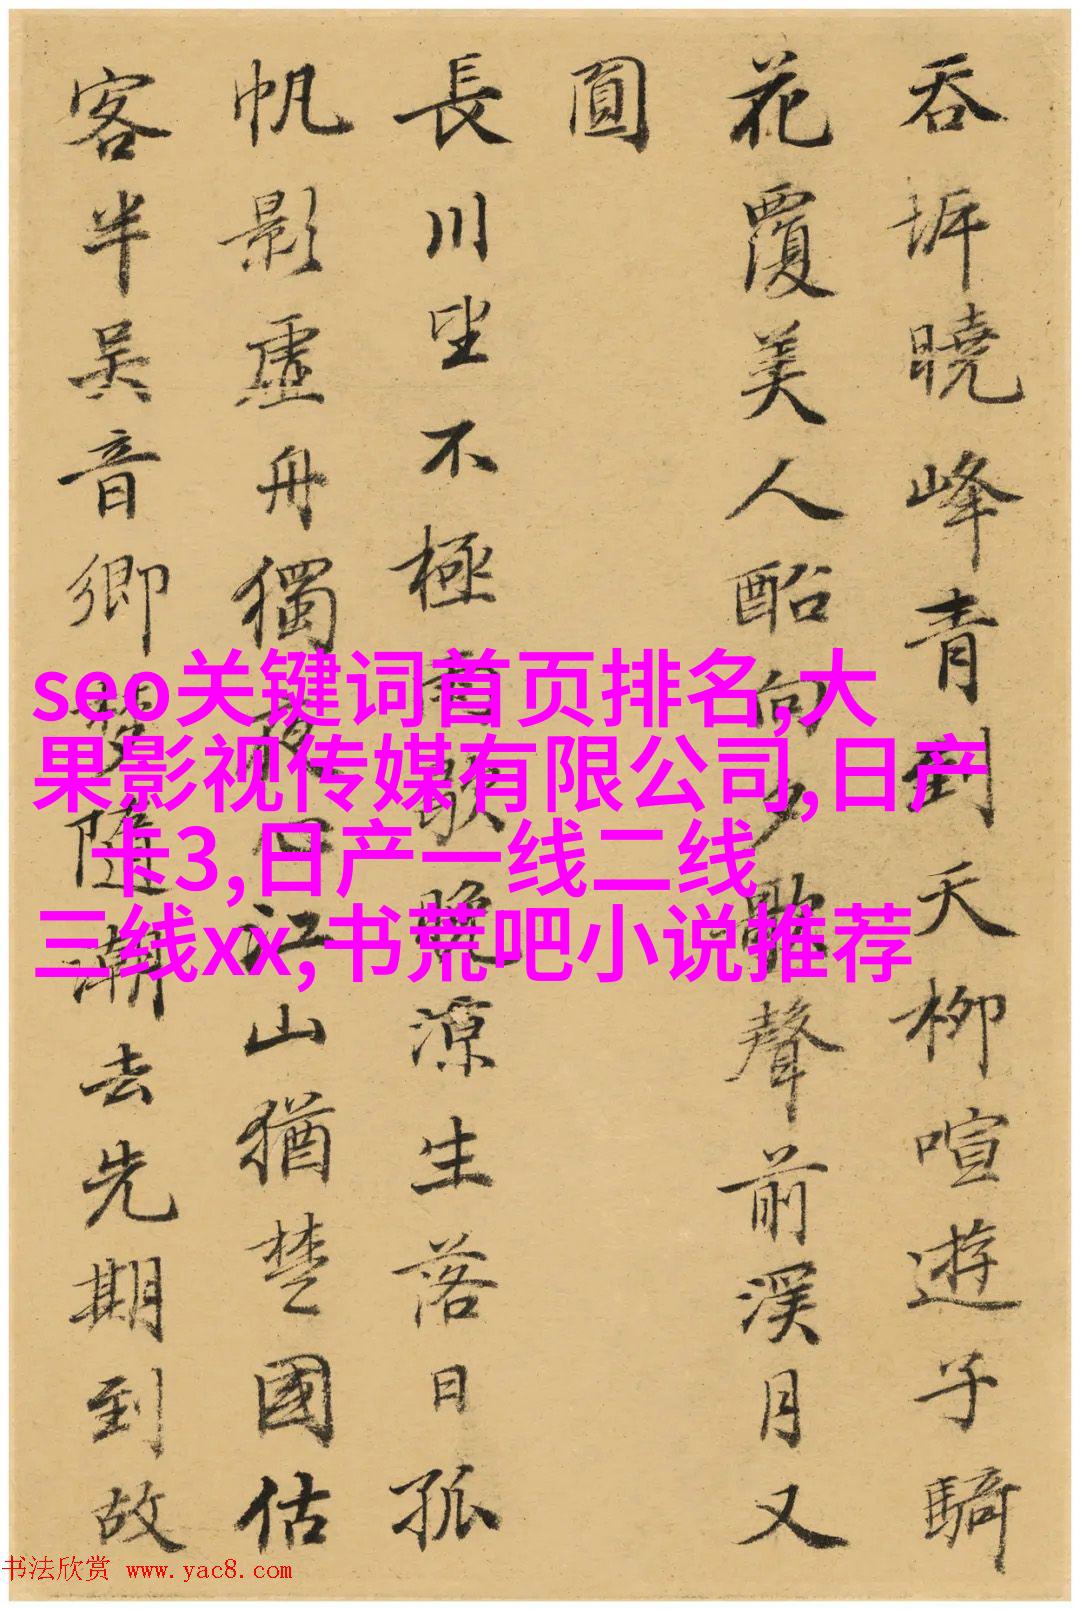 吞坼曉峰青到天柳喧遊子騎
花覆美人船向夕歌聲前溪月又
圓
長川坐不極歌晚涼生落日孤
帆影虛舟獨夜心江山猶楚國估
客半吳音鄉夢隨潮去先期到故
seo关键词首页排名,大
果影视传媒有限公司,日产
一卡3,日产一线二线
三线xx,书荒吧小说推荐
书法欣赏 www.yac8.com